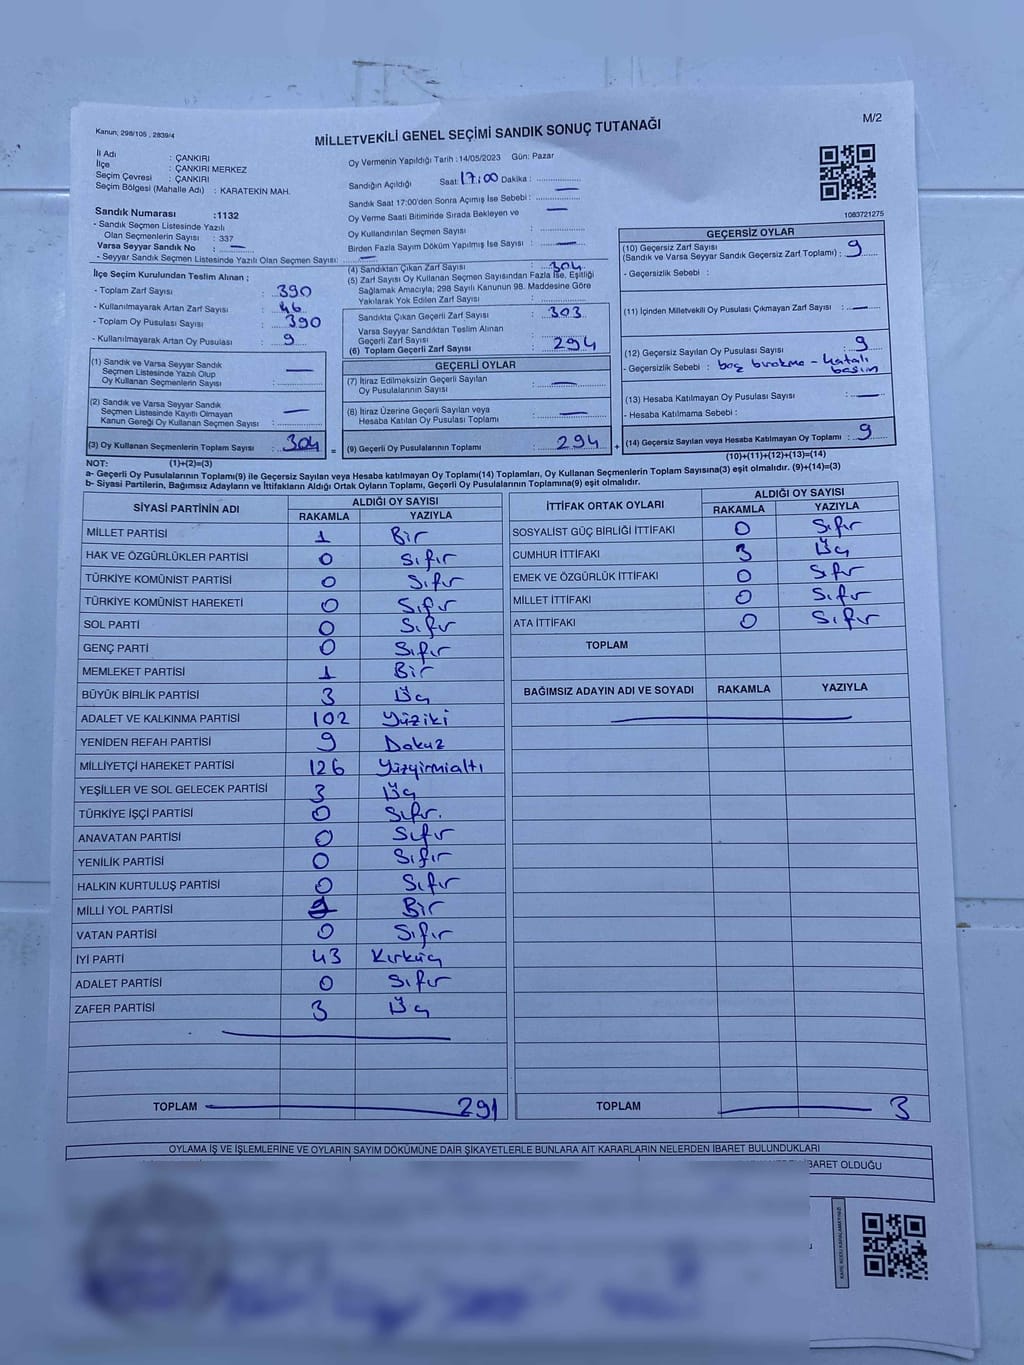 Kanun, 298/105 , 2839/4
M/2
MİLLETVEKİLİ GENEL SEÇİMİ SANDIK SONUÇ TUTANAĞI
İl Adı : ÇANKIRI
İlçe : ÇANKIRI MERKEZ
Seçim Çevresi : ÇANKIRI
Seçim Bölgesi (Mahalle Adı) : KARATEKIN MAH.
Sandık Numarası :1132
- Sandık Seçmen Listesinde Yazılı
Olan Seçmenlerin Sayısı : 337
Varsa Seyyar Sandık No : —
- Seyyar Sandık Seçmen Listesinde Yazılı Olan Seçmen Sayısı: —
Oy Vermenin Yapıldığı Tarih : 14/05/2023 Gün: Pazar
Sandığın Açıldığı Saat: 17:00 Dakika :
Sandık Saat 17:00'den Sonra Açımış İse Sebebi : —
Oy Verme Saati Bitiminde Sırada Bekleyen ve
Oy Kullandırılan Seçmen Sayısı : —
Birden Fazla Sayım Döküm Yapılmış İse Sayısı : —
1083721275
İlçe Seçim Kurulundan Teslim Alınan ;
- Toplam Zarf Sayısı : 390
- Kullanılmayarak Artan Zarf Sayısı : 46
- Toplam Oy Pusulası Sayısı : 390
- Kullanılmayarak Artan Oy Pusulası : 9
(1) Sandık ve Varsa Seyyar Sandık
Seçmen Listesinde Yazılı Olup
Oy Kullanan Seçmenlerin Sayısı : —
(2) Sandık ve Varsa Seyyar Sandık
Seçmen Listesinde Kayıtlı Olmayan
Kanun Gereği Oy Kullanan Seçmen Sayısı : —
(3) Oy Kullanan Seçmenlerin Toplam Sayısı : 304
(1)+(2)=(3)
(4) Sandıktan Çıkan Zarf Sayısı : 304
(5) Zarf Sayısı Oy Kullanan Seçmen Sayısından Fazla İse, Eşitliği
Sağlamak Amacıyla; 298 Sayılı Kanunun 98. Maddesine Göre
Yakılarak Yok Edilen Zarf Sayısı :
Sandıkta Çıkan Geçerli Zarf Sayısı : 303
Varsa Seyyar Sandıktan Teslim Alınan
Geçerli Zarf Sayısı :
(6) Toplam Geçerli Zarf Sayısı : 294
GEÇERLİ OYLAR
(7) İtiraz Edilmeksizin Geçerli Sayılan
Oy Pusulalarının Sayısı : —
(8) İtiraz Üzerine Geçerli Sayılan veya
Hesaba Katılan Oy Pusulası Toplamı : —
= (9) Geçerli Oy Pusulalarının Toplamı : 294
GEÇERSİZ OYLAR
(10) Geçersiz Zarf Sayısı
(Sandık ve Varsa Seyyar Sandık Geçersiz Zarf Toplamı) : 9
- Geçersizlik Sebebi :
(11) İçinden Milletvekili Oy Pusulası Çıkmayan Zarf Sayısı : —
(12) Geçersiz Sayılan Oy Pusulası Sayısı : 9
- Geçersizlik Sebebi : boş bırakma - hatalı
basım
(13) Hesaba Katılmayan Oy Pusulası Sayısı : —
- Hesaba Katılmama Sebebi :
+ (14) Geçersiz Sayılan veya Hesaba Katılmayan Oy Toplamı : 9
(10)+(11)+(12)+(13)=(14)
NOT:
a- Geçerli Oy Pusulalarının Toplamı(9) ile Geçersiz Sayılan veya Hesaba katılmayan Oy Toplamı(14) Toplamları, Oy Kullanan Seçmenlerin Toplam Sayısına(3) eşit olmalıdır. (9)+(14)=(3)
b- Siyasi Partilerin, Bağımsız Adayların ve İttifakların Aldığı Ortak Oyların Toplamı, Geçerli Oy Pusulalarının Toplamına(9) eşit olmalıdır.
SİYASİ PARTİNİN ADI ALDIĞI OY SAYISI
RAKAMLA YAZIYLA
MİLLET PARTİSİ 1 Bir
HAK VE ÖZGÜRLÜKLER PARTİSİ 0 Sıfır
TÜRKİYE KOMÜNİST PARTİSİ 0 Sıfır
TÜRKİYE KOMÜNİST HAREKETİ 0 Sıfır
SOL PARTİ 0 Sıfır
GENÇ PARTİ 0 Sıfır
MEMLEKET PARTİSİ 1 Bir
BÜYÜK BİRLİK PARTİSİ 3 Üç
ADALET VE KALKINMA PARTİSİ 102 Yüziki
YENİDEN REFAH PARTİSİ 9 Dokuz
MİLLİYETÇİ HAREKET PARTİSİ 126 Yüzyirmialtı
YEŞİLLER VE SOL GELECEK PARTİSİ 3 Üç
TÜRKİYE İŞÇİ PARTİSİ 0 Sıfır.
ANAVATAN PARTİSİ 0 Sıfır
YENİLİK PARTİSİ 0 Sıfır
HALKIN KURTULUŞ PARTİSİ 0 Sıfır
MİLLİ YOL PARTİSİ 1 Bir
VATAN PARTİSİ 0 Sıfır
İYİ PARTİ 43 Kırküç
ADALET PARTİSİ 0 Sıfır
ZAFER PARTİSİ 3 Üç
TOPLAM 291
İTTİFAK ORTAK OYLARI ALDIĞI OY SAYISI
RAKAMLA YAZIYLA
SOSYALİST GÜÇ BİRLİĞİ İTTİFAKI 0 Sıfır
CUMHUR İTTİFAKI 3 Üç
EMEK VE ÖZGÜRLÜK İTTİFAKI 0 Sıfır
MİLLET İTTİFAKI 0 Sıfır
ATA İTTİFAKI 0 Sıfır
TOPLAM
BAĞIMSIZ ADAYIN ADI VE SOYADI RAKAMLA YAZIYLA
TOPLAM 3
OYLAMA İŞ VE İŞLEMLERİNE VE OYLARIN SAYIM DÖKÜMÜNE DAİR ŞİKAYETLERLE BUNLARA AİT KARARLARIN NELERDEN İBARET BULUNDUKLARI
BARET OLDUĞU